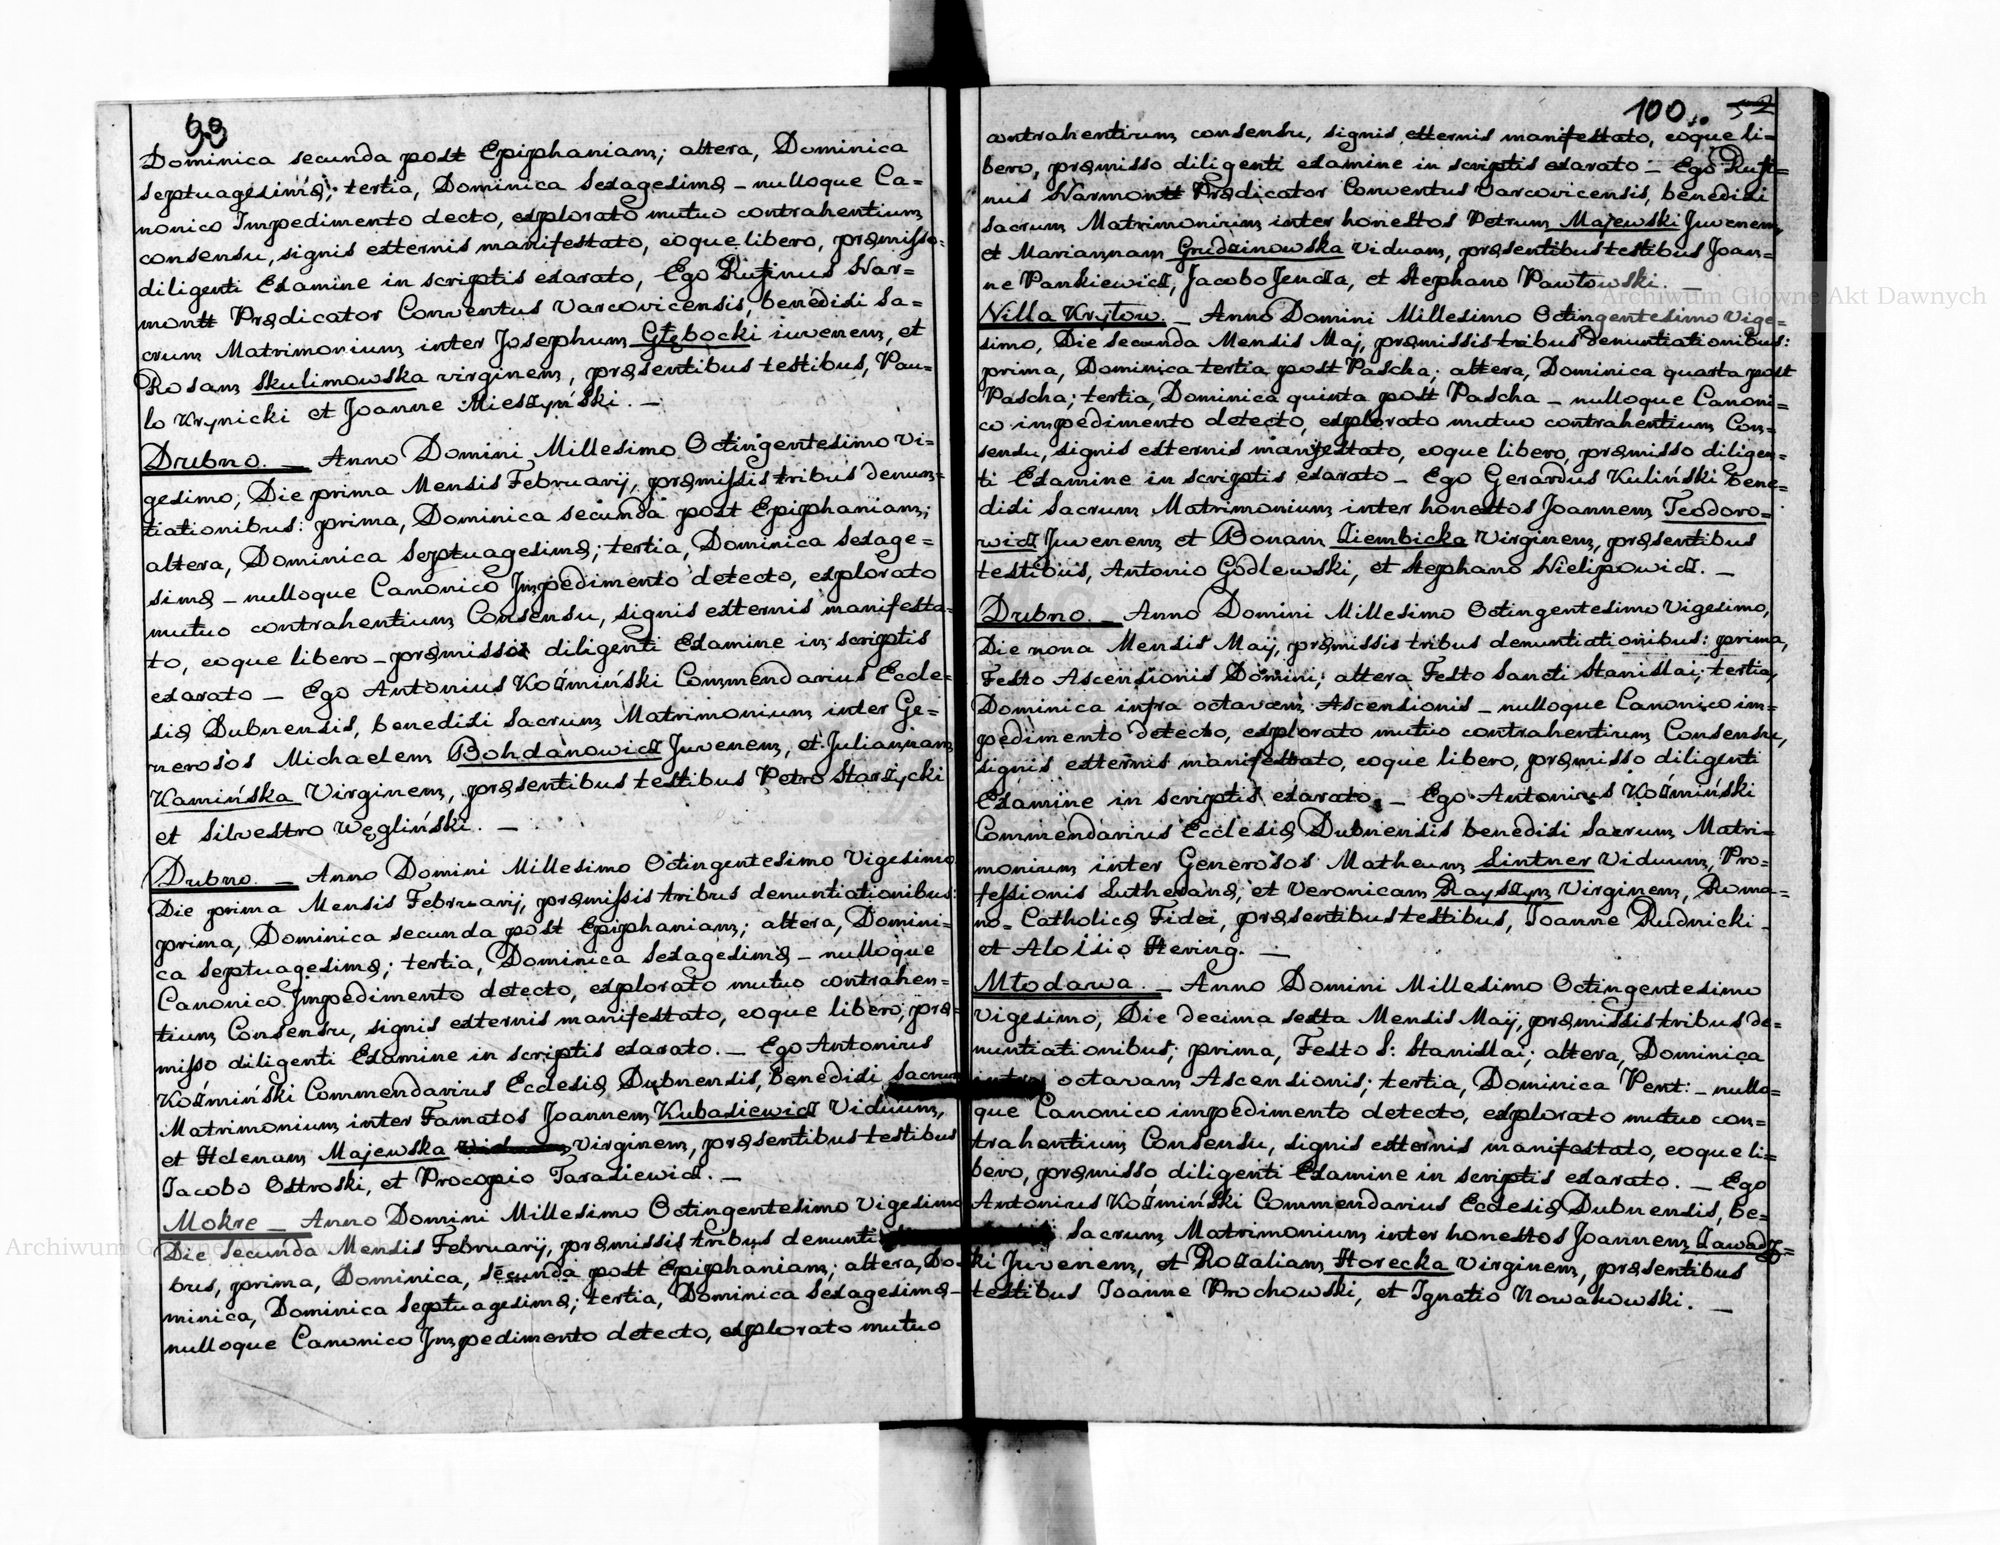 99
Dominica secunda post Epiphaniam; altera, Dominica
Septuagesimæ; tertia, Dominica Sexagesimæ – nulloque Ca=
nonico Impedimento decto, explorato mutuo contrahentium
consensu, signis externis manifestato, eoque libero, præmisso
diligenti Examine in scriptis exarato, Ego Rufinus War=
montt Prædicator Conventus Varcovicensis, benedixi Sa=
crum Matrimonium inter Josephum Głębocki iuvenem, et
Rosam Skulimowska virginem, præsentibus testibus, Pau=
lo Krynicki et Joanne Mieszyński. –
Dubno. – Anno Domini Millesimo Octingentesimo Vi=
gesimo, Die prima Mensis Februarij, præmissis tribus denun=
tiationibus: prima, Dominica secunda post Epiphaniam;
altera, Dominica Septuagesimæ; tertia, Dominica Sexage=
simæ – nulloque Canonico Impedimento detecto, explorato
mutuo contrahentium Consensu, signis externis manifesta=
to, eoque libero – præmisso diligenti Examine in scriptis
exarato – Ego Antonius Koźmiński Commendarius Eccle=
siæ Dubnensis, benedixi Sacrum Matrimonium inter Ge=
nerosos Michaelem Bohdanowicz Juvenem, et Juliannam
Kamińska Virginem, præsentibus testibus Petro Starżycki
et Silvestro Węgliński. –
Dubno. – Anno Domini Millesimo Octingentesimo Vigesimo
Die prima Mensis Februarij, præmissis tribus denuntiationibus:
prima, Dominica secunda post Epiphaniam; altera, Domini=
ca Septuagesimæ; tertia, Dominica Sexagesimæ – nulloque
Canonico Impedimento detecto, explorato mutuo contrahen=
tium Consensu, signis externis manifestato, eoque libero, præ=
misso diligenti Examine in scriptis exarato. – Ego Antonius
Koźmiński Commendarius Ecclesiæ Dubnensis, benedixi Sacrum
Matrimonium inter Famatos Joannem Kubasiewicz Viduum,
et Helenam Majewska Virginem, præsentibus testibus
Jacobo Ostroski, et Procopio Tarasiewicz. –
Mokre – Anno Domini Millesimo Octingentesimo Vigesimo
Die Secunda Mensis Februarij, præmissis tribus denunti
bus, prima, Dominica, secunda post Epiphaniam; altera, Do=
minica, Dominica Septuagesimæ; tertia, Dominica Sexagesimæ –
nulloque Canonico Impedimento detecto, explorato mutuo
100. 52
contrahentium consensu, signis externis manifestato, eoque li=
bero, præmisso diligenti examine in scriptis exarato – Ego Rufi=
nus Warmontt Prædicator Conventus Varcovicensis, benedixi
sacrum Matrimonium inter honestos Petrum Majewski Juvenem,
et Mariannam Grudzinowska Viduam, præsentibus testibus Joan=
ne Pankiewicz, Jacobo Jencza, et Stephano Pawłowski. –
Villa Kryłow. – Anno Domini Millesimo Octingentesimo Vige=
simo, Die secunda Mensis Maj, præmissis tribus denuntiationibus:
prima, Dominica tertia post Pascha; altera, Dominica quarta post
Pascha; tertia, Dominica quinta post Pascha – nulloque Canoni=
co impedimento detecto, explorato mutuo contrahentium Con=
sensu, signis externis manifestato, eoque libero, præmisso diligen=
ti Examine in scriptis exarato – Ego Gerardus Kuliński bene=
dixi Sacrum Matrimonium inter honestos Joannem Teodoro=
wicz Juvenem et Bonam Ziembicka Virginem, præsentibus
testibus, Antonio Godlewski, et Stephano Wielipowicz. –
Dubno. – Anno Domini Millesimo Octingentesimo Vigesimo,
Die nona Mensis Maij, præmissis tribus denuntiationibus: prima,
Festo Ascensionis Domini; altera Festo Sancti Stanislai; tertia,
Dominica infra octavam Ascensionis – nulloque Canonico im=
pedimento detecto, explorato mutuo contrahentium Consensu,
signis externis manifestato, eoque libero, præmisso diligenti
Examine in scriptis exarato. – Ego Antonius Koźmiński
Commendarius Ecclesiæ Dubnensis benedixi Sacrum Matri=
monium inter Generosos Matheum Lintner Viduum, Pro=
fessionis Lutheranæ, et Veronicam Rayszym Virginem, Roma=
no-Catholicæ Fidei, præsentibus testibus, Joanne Rudnicki
et Aloisio Hering. –
Młodawa. – Anno Domini Millesimo Octingentesimo
Vigesimo, Die decima sexta Mensis Maij, præmissis tribus de=
nuntiationibus; prima, Festo S: Stanislai; altera, Dominica
octavam Ascensionis; tertia, Dominica Pent: – nullo=
que Canonico impedimento detecto, explorato mutuo con=
trahentium Consensu, signis externis manifestato, eoque li=
bero, præmisso diligenti Examine in scriptis exarato. – Ego
Antonius Koźmiński Commendarius Ecclesiæ Dubnensis, be=
Sacrum Matrimonium inter honestos Joannem Zawadz=
ki Juvenem, et Rozaliam Horecka Virginem, præsentibus
testibus Joanne Prochowski, et Ignatio Nowakowski. –
Archiwum Główne Akt Dawnych
Archiwum Główne Akt Dawnych